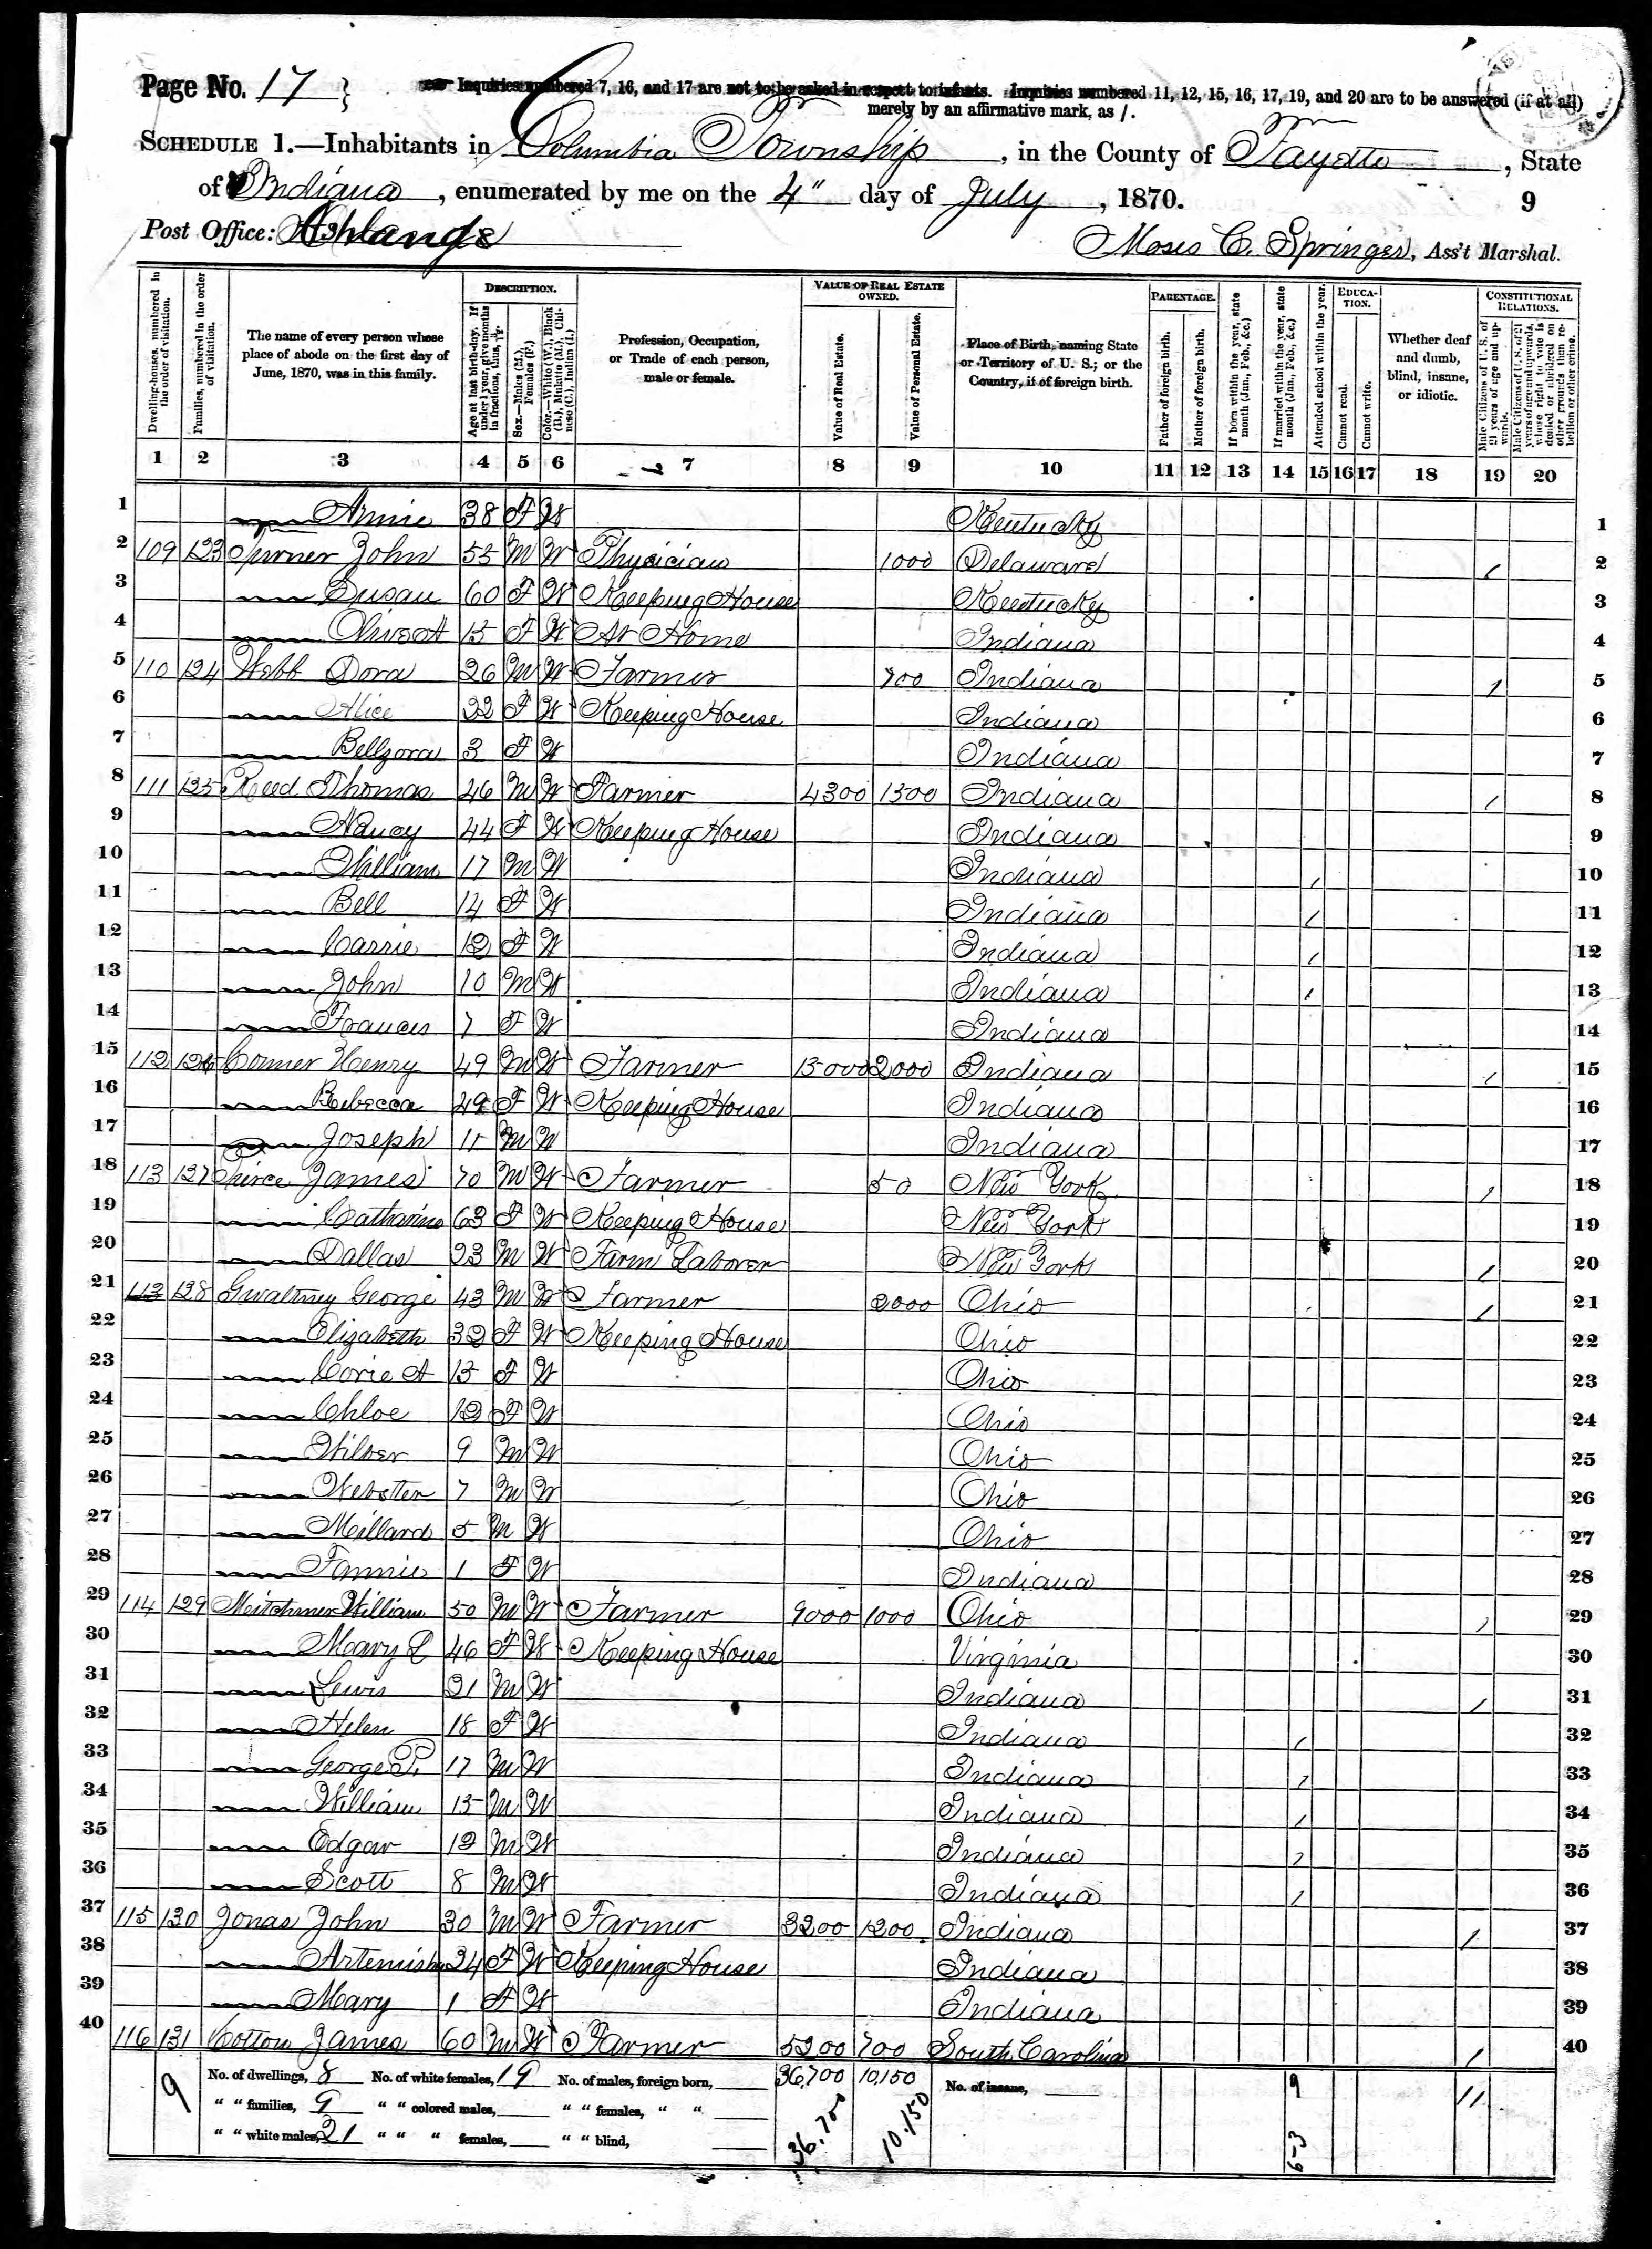 Page No. 17
Inquiries numbered 7, 16, and 17 are not to be asked in respect to infants. Inquiries numbered 11, 12, 15, 16, 17, 19, and 20 are to be answered (if at all)
merely by an affirmative mark, as /.
SCHEDULE 1.—Inhabitants in Columbia Township, in the County of Fayette, State
of Indiana, enumerated by me on the 4" day of July, 1870.
9
Post Office:
Moses C. Springer, Ass't Marshal.
Dwelling-houses, numbered in the order of visitation.
Families, numbered in the order of visitation.
The name of every person whose place of abode on the first day of June, 1870, was in this family.
DESCRIPTION.
Age at last birth-day. If under 1 year, give months in fractions, thus,
Sex.—Males (M.), Females (F.)
Color.—White (W.), Black (B.), Mulatto (M.), Chinese (C.), Indian (I.)
Profession, Occupation, or Trade of each person, male or female.
VALUE OF REAL ESTATE OWNED.
Value of Real Estate.
Value of Personal Estate.
Place of Birth, naming State or Territory of U. S.; or the Country, if of foreign birth.
PARENTAGE.
Father of foreign birth.
Mother of foreign birth.
If born within the year, state month (Jan., Feb., &c.)
If married within the year, state month (Jan., Feb., &c.)
Attended school within the year.
EDUCATION.
Cannot read.
Cannot write.
Whether deaf and dumb, blind, insane, or idiotic.
CONSTITUTIONAL RELATIONS.
Male Citizens of U. S. of 21 years of age and upwards.
Male Citizens of U. S. of 21 years of age and upwards, whose right to vote is denied or abridged on other grounds than rebellion or other crime.
1 2 3 4 5 6 7 8 9 10 11 12 13 14 15 16 17 18 19 20
1 Annie 38 F W Kentucky 1
2 109 123 John 55 M W Physician 1000 Delaware / 2
3 Susan 60 F W Keeping House Kentucky 3
4 Olive A 15 F W At Home Indiana 4
5 110 124 Webb Dora 26 M W Farmer 700 Indiana / 5
6 Alice 22 F W Keeping House Indiana 6
7 Bellzora 3 F W Indiana 7
8 111 125 Reed Thomas 46 M W Farmer 4300 1300 Indiana / 8
9 Nancy 44 F W Keeping House Indiana 9
10 William 17 M W Indiana / 10
11 Bell 14 F W Indiana / 11
12 Carrie 12 F W Indiana / 12
13 John 10 M W Indiana / 13
14 Frances 7 F W Indiana 14
15 112 126 Conner Henry 49 M W Farmer 15000 2000 Indiana / 15
16 Rebecca 49 F W Keeping House Indiana 16
17 Joseph 11 M W Indiana 17
18 113 127 Pierce James 70 M W Farmer 50 New York / 18
19 Catharine 63 F W Keeping House New York 19
20 Dallas 23 M W Farm Laborer New York / 20
21 113 128 Gwaltney George 43 M W Farmer 2000 Ohio / 21
22 Elizabeth 32 F W Keeping House Ohio 22
23 Corie A 15 F W Ohio 23
24 Chloe 12 F W Ohio 24
25 Wilber 9 M W Ohio 25
26 Webster 7 M W Ohio 26
27 Millard 5 M W Ohio 27
28 Fannie 1 F W Indiana 28
29 114 129 William 50 M W Farmer 9000 1000 Ohio / 29
30 Mary E 46 F W Keeping House Virginia 30
31 Lewis 21 M W Indiana / 31
32 Helen 18 F W Indiana / 32
33 George P. 17 M W Indiana / 33
34 William 15 M W Indiana / 34
35 Edgar 12 M W Indiana / 35
36 Scott 8 M W Indiana / 36
37 115 130 Jonas John 30 M W Farmer 3200 1200 Indiana / 37
38 24 F W Keeping House Indiana 38
39 Mary 1 F W Indiana 39
40 116 131 Cotton James 60 M W Farmer 5200 700 South Carolina / 40
9 No. of dwellings, 8 No. of white females, 19 No. of males, foreign born, 36,700 10,150 No. of insane, 9 11
" " families, 9 " " colored males, " " females, " "
" " white males, 21 " " " females, " " blind, 36.700 10.150 6-3